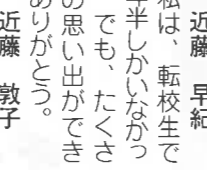 近藤　早紀
私は、転校生で
年半しかいなかっ
でも、たくさ
の思い出ができ
ありがとう。
近藤　敦子